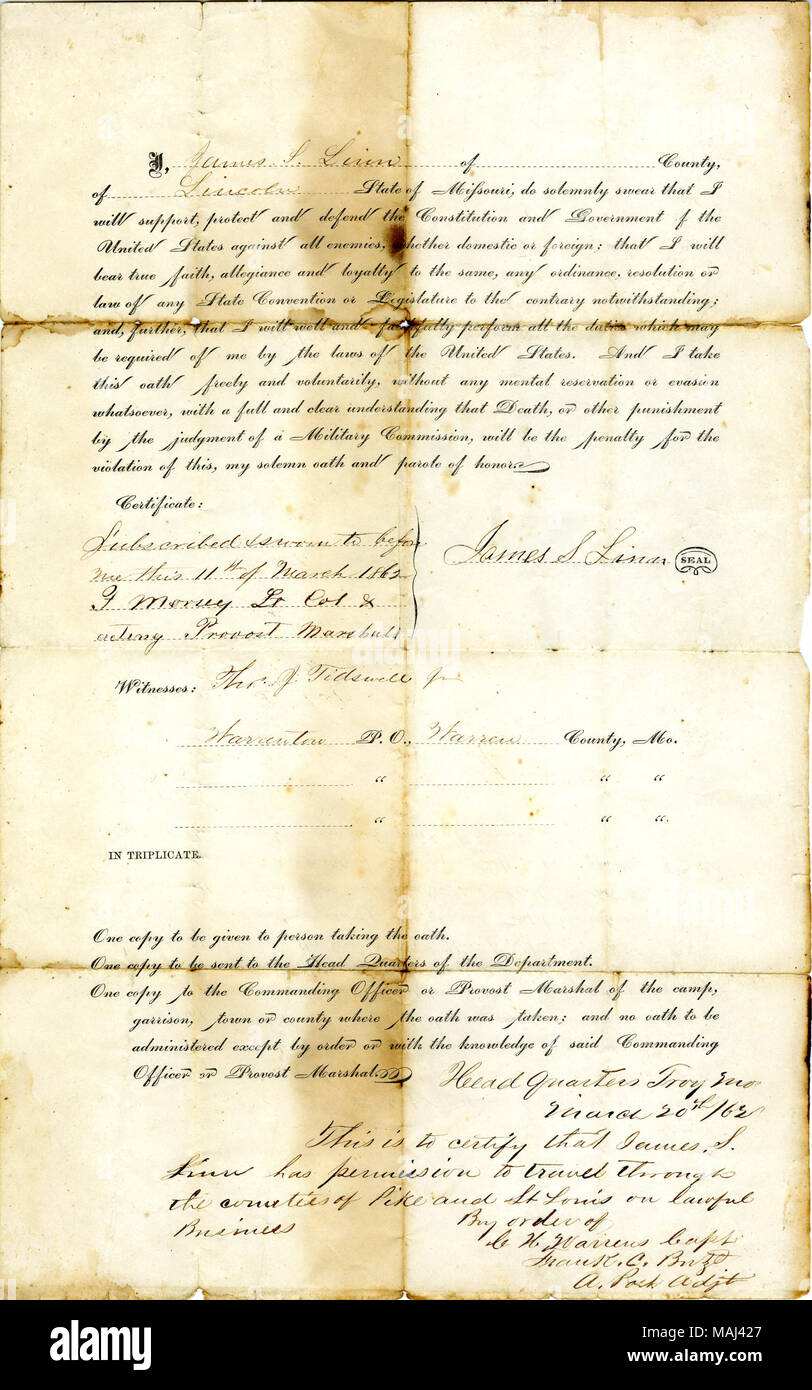 I, James S. Linn of County,
of Lincoln State of Missouri, do solemnly swear that I
will support, protect and defend the Constitution and Government f the
United States against all enemies, whether domestic or foreign; that I will
bear true faith, allegiance and loyalty to the same, any ordinance, resolution or
law of any State Convention or Legislature to the contrary notwithstanding;
and, further, that I will well and faithfully perform all the duties which may
be required of me by the laws of the United States. And I take
this oath freely and voluntarily, without any mental reservation or evasion
whatsoever, with a full and clear understanding that Death, or other punishment
by the judgment of a Military Commission, will be the penalty for the
violation of this, my solemn oath and parole of honor.
Certificate:
Subscribed & sworn to before
me this 11th of March 1862
F Morsey Lt Col &
acting Provost Marshall
James S. Linn SEAL
Witnesses: Thos. J. Tidswell jr
Warrenton P. O., Warren County, Mo.
" " "
" " "
IN TRIPLICATE.
One copy to be given to person taking the oath.
One copy to be sent to the Head Quarters of the Department.
One copy to the Commanding Officer or Provost Marshal of the camp,
garrison, town or county where the oath was taken; and no oath to be
administered except by order or with the knowledge of said Commanding
Officer or Provost Marshal.
Head Quarters Troy Mo
March 20th/62
This is to certify that James. S.
Linn has permission to travel through
the counties of Pike and St Louis on lawful
Business
By order of
C W Warrens Capt
Frank. C.
A. Post Adjt
alamy
Image ID: MAJ427
www.alamy.com